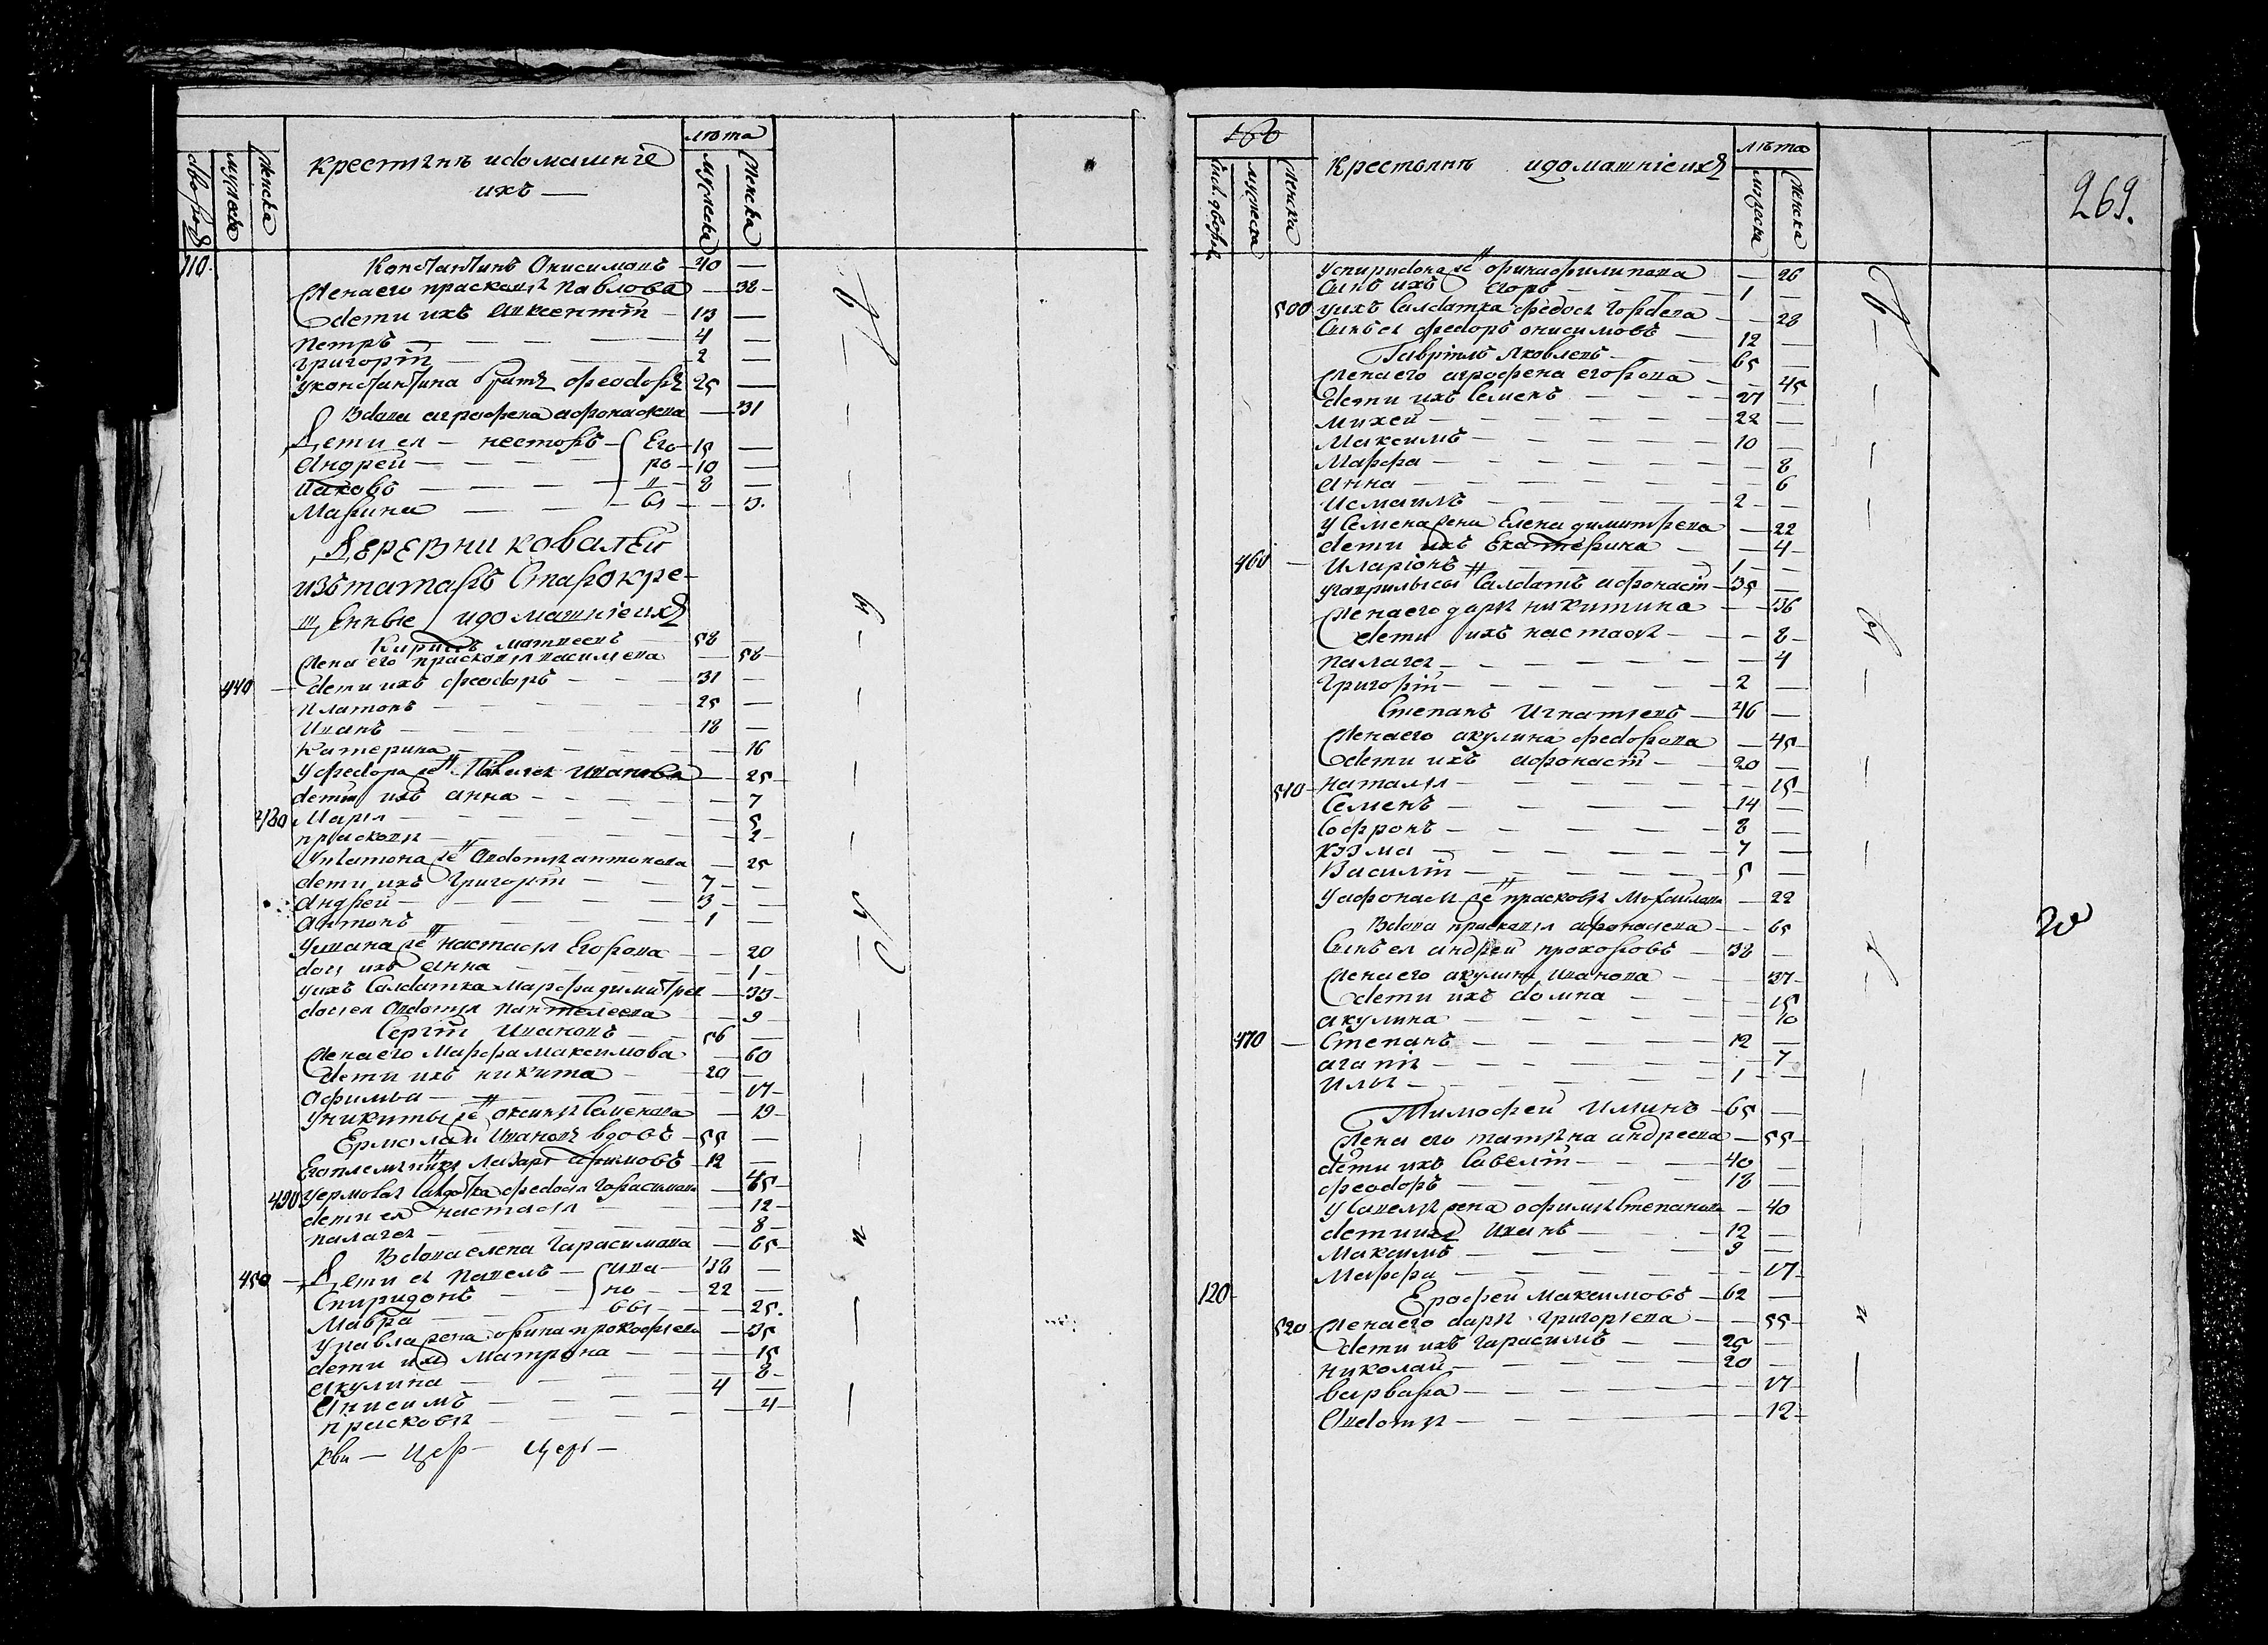 лѣта
дворовъ мужеска женска
крестянъ идомашнїе
ихъ —
мужеска женска
110. Константинъ Онисимовъ — 40 —
Жена его прасковья Павлова — 38
дети ихъ Авксентїй — 13 —
Петръ — 4 —
Григорїй — 2 —
Уконстантина братъ феодоръ 25 —
Вдова аграфена афонасева — 31
Дети ея — несторъ — Его 15 —
Андрей — ро 10 —
Иаковъ — " 8 —
Марина — вы — 3.
Деревни ковалей
изътатаръ Старокре-
щенные идомашнїеихъ
Кирилъ матвеевъ 58 —
Жена его прасковья — 58
440 — дети ихъ феодоръ — 31 —
Платонъ — 25 —
Иванъ — 18 —
Катерина — 16
Уфедора же" Иванова — 25
дети ихъ анна — 7
480 Марья — 5
прасковья — 2
Уплатона же" Авдотья антонова — 25
дети ихъ Григорїй — 7 —
Андрей — 3 —
Антонъ — 1 —
Уивана же" настасья Егорова — 20
дочь ихъ Анна — 1
уихъ Салдатка Марфа димитрея — 33
дочь ея Авдотья пантелеева — 9
Сергїй Ивановъ — 56 —
Жена его Марфа Максимова — 60
дети ихъ никита — 20 —
Афимья — 17
Уникиты же" оксинья Семенова — 19
Ермолай Ивановъ вдовъ — 55 —
Егоплемянникъ Лазарь — 12 —
490 уермолая федосья Гарасимова — 45
дети ея настасья — 12
палагея — 8
Вдова елена Гарасимова — 65
450 — Дети ея Павелъ — ива 38 —
Спиридонъ — но 22 —
Мавра — вы — 25.
Упавла жена офина прокофьева — 35
дети ихъ Матрона — 15
Акулина — 8
Анисимъ — 4 —
прасковья — 4
лѣта
чис. дворъ мужеска женска
Крестьянъ идомашнїеихъ
мужеска женска
269.
Успиридона же" офинафилипова — 26
Сынъ ихъ Егоръ — 1 —
500 уихъ Салдатка федосья Гордева — 28
Сынъ ея федоръ онисимовъ — 12 —
Гаврїилъ Яковлевъ — 65 —
Жена его аграфена егорова — 45
дети ихъ Семенъ — 27 —
михей — 22 —
Максимъ — 10 —
Марфа — 8
Анна — 6
Исмаилъ — 2 —
У Семена жена Елена димитрева — 22
дети ихъ Екатерина — 4
460 — Иларїонъ — 1 —
Угаврилы Салдатъ афонасїй — 35 —
Жена его дарья никитина — 36
дети ихъ настасья — 8
палагея — 4
Григорїй — 2 —
Степанъ Игнатьевъ — 46 —
Жена его акулина федорова — 45
дети ихъ афонасїй — 20 —
510 наталья — 15
Семенъ — 14 —
Софронъ — 8 —
Кузма — 7 —
Василїй — 5 —
Уафонася же" прасковья Михаилова — 22
Вдова прасковья афонасева — 65
Сынъ ея андрей прохоровъ — 38 —
Жена его акулина Иванова — 37
дети ихъ домна — 15
акулина — 10
470 — Степанъ — 12 —
агапїя — 7
Илья — 1 —
Тимофей Илинъ — 65 —
Жена его татьяна андреева — 55
дети ихъ Савелїй — 40 —
феодоръ — 18 —
У Савелья жена офимья Степанова — 40
дети ихъ Иванъ — 12 —
Максимъ — 9 —
Марфа — 17
120 Ерофей Максимовъ — 62 —
520 Жена его дарья Григорьева — 55
дети ихъ Гарасимъ — 25 —
николай — 20 —
варвара — 17
Авдотья — 12